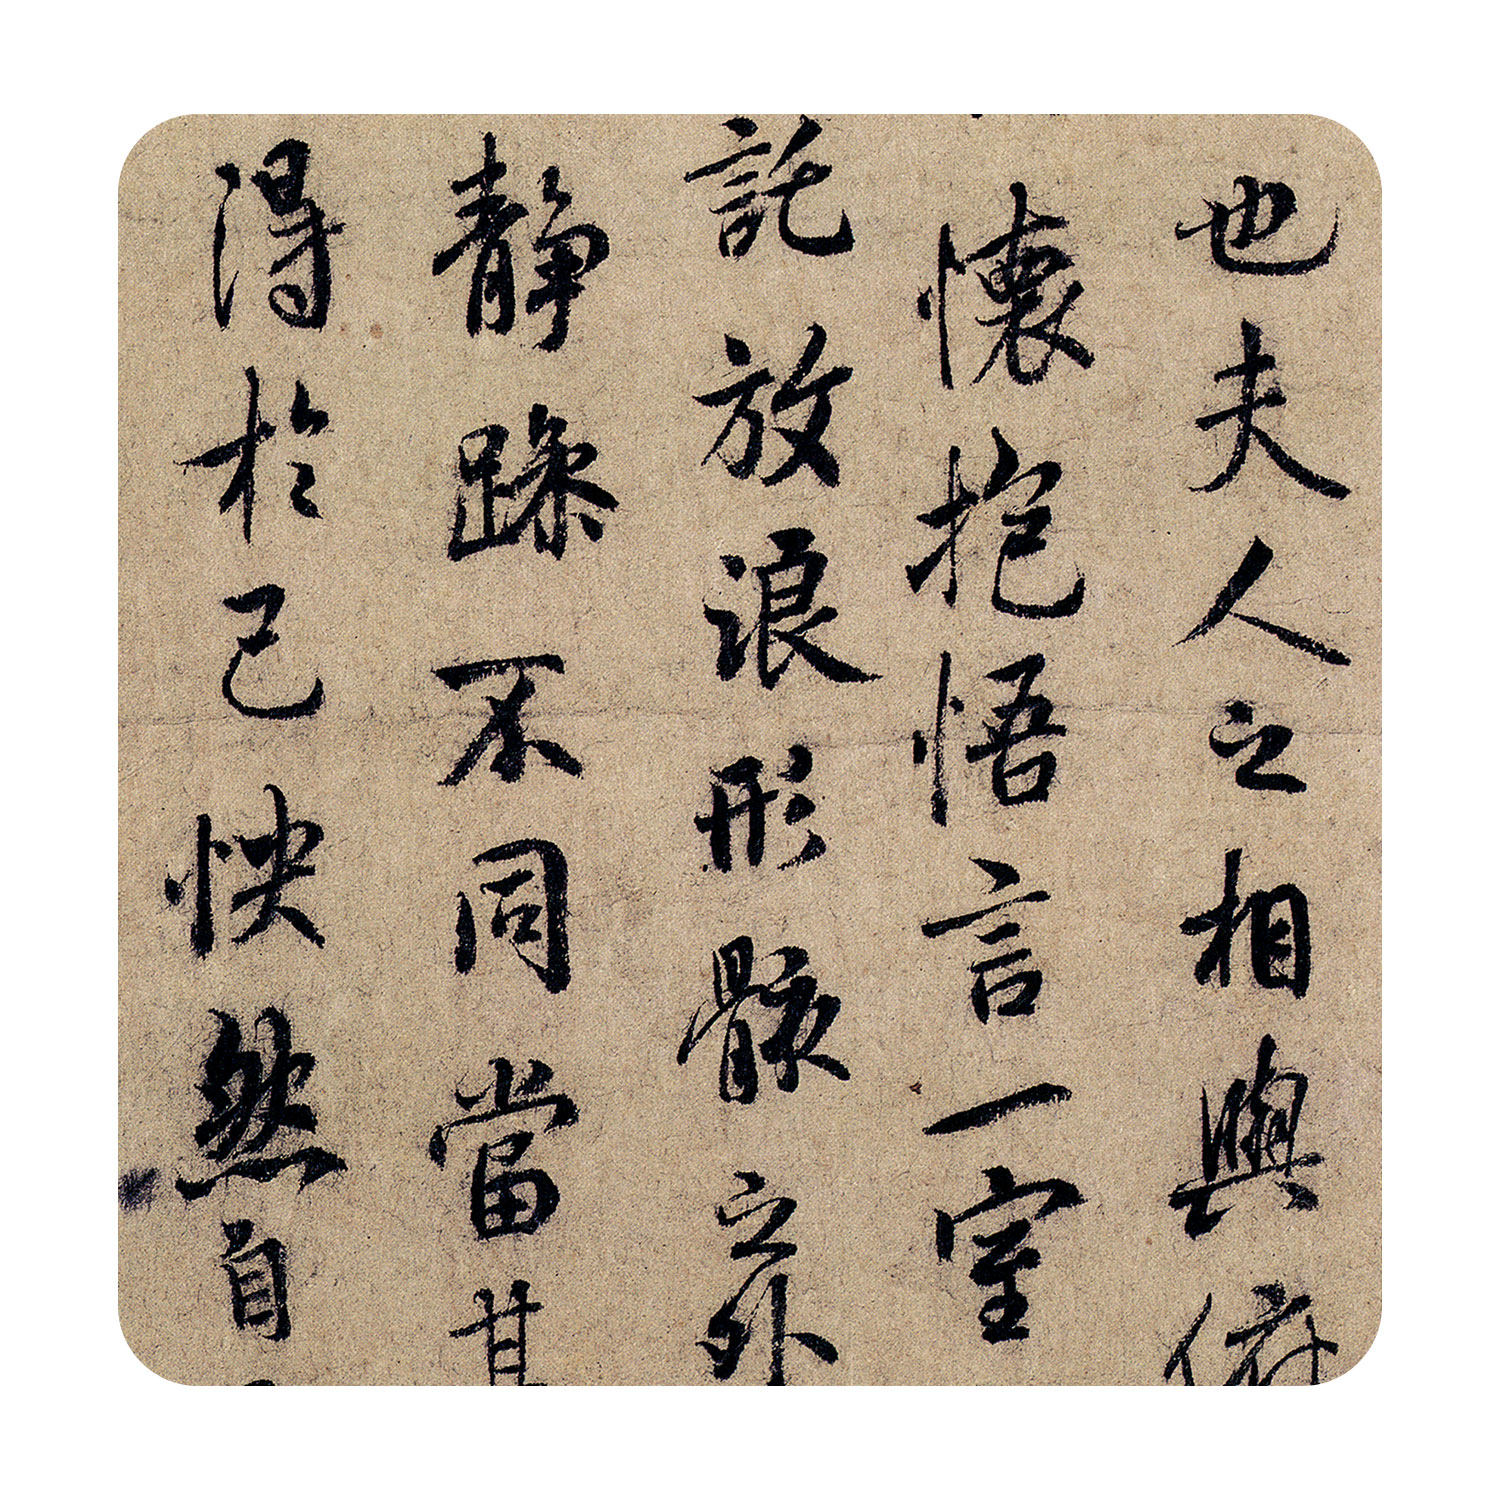 也夫人之相與俯
懷抱悟言一室
託放浪形骸之外
静躁不同當其
得於己怏然自